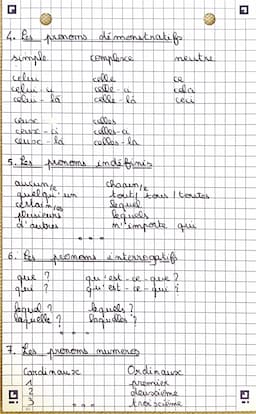 4. Les pronoms démonstratifs
simple complexe neutre
celui celle ce
celui-ci celle-ci cela
celui-là celle-là ceci
ceux celles
ceux-ci celles-ci
ceux-là celles-là
5. Les pronoms indéfinis
aucun/e chacun/e
quelqu'un tout/tous/toutes
certain/es lequel
plusieurs lesquels
d'autres n'importe qui
6. Les pronoms interrogatifs
que ? qu'est-ce-que ?
qui ? qu'est-ce-qui ?
lequel ? lesquels ?
laquelle ? lesquelles ?
7. Les pronoms numeros
Cardinaux Ordinaux
1 premier
2 deuxième
3 troisième